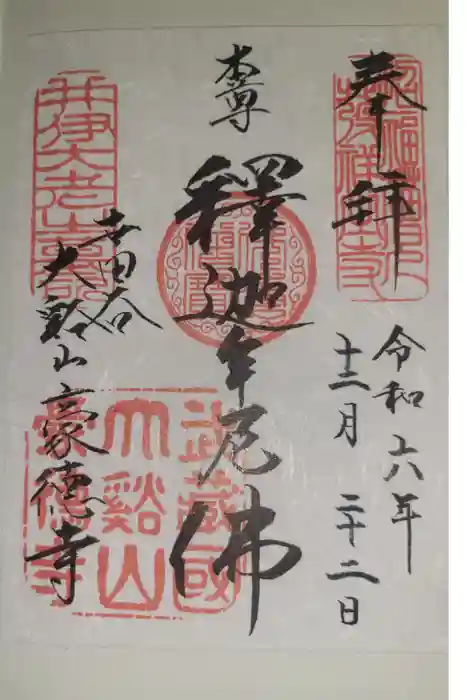 奉拝
令和六年
十二月二十二日
本尊
釋迦牟尼佛
世田谷
大谿山豪德寺
武蔵國
大谿山
豪德寺
井伊大老